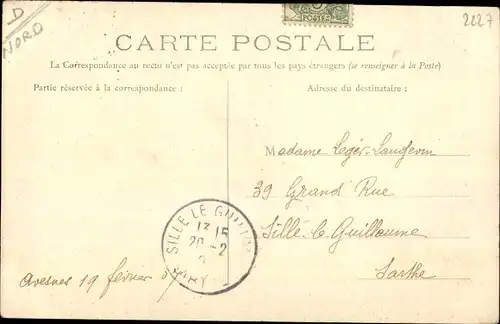 D
NORD
2227
POSTES
CARTE POSTALE
La Correspondance au recto n'est pas acceptée par tous les pays étrangers (se renseigner à la Poste)
Partie réservée à la correspondance :
Adresse du destinataire :
Madame Léger-Langevin
39 Grand Rue
Sillé-le-Guillaume
Sarthe
SILLE LE GUILL
13 15
20 - 2
Avesnes 19 février